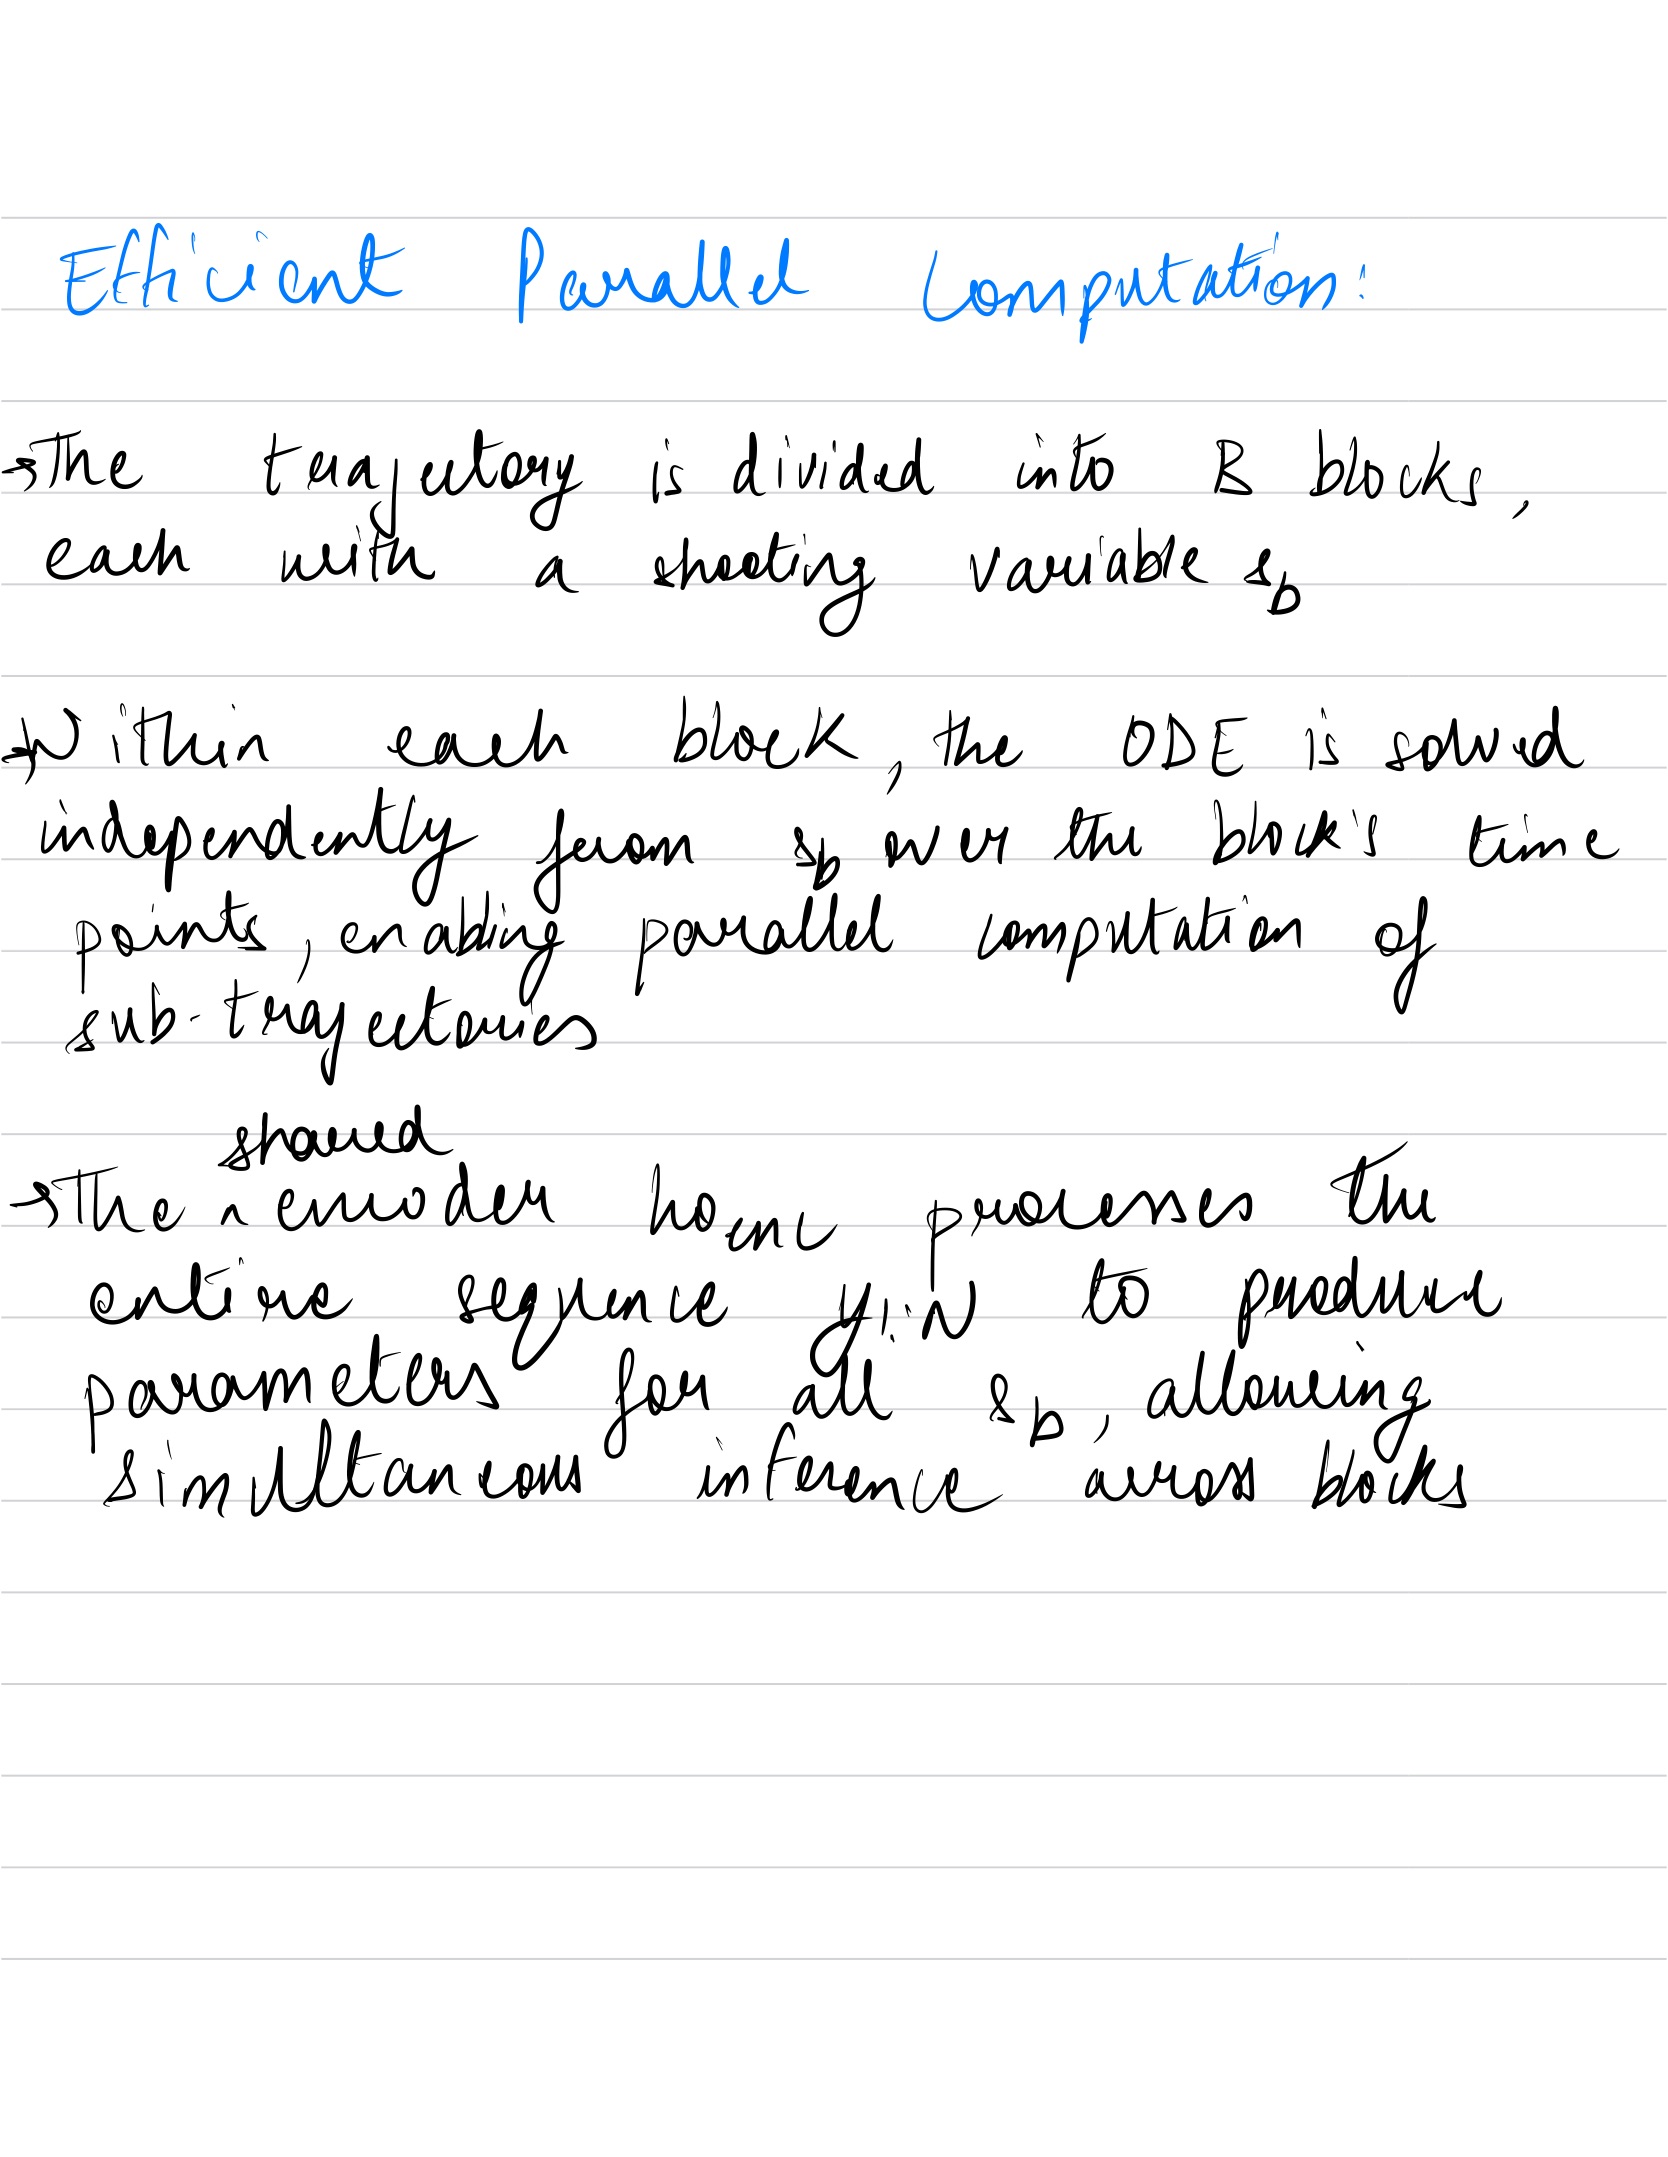 Efficient Parallel Computation:
→The trajectory is divided into B blocks,
each with a shooting variable s_b
→Within each block, the ODE is solved
independently from s_b over the block's time
points, enabling parallel computation of
sub-trajectories
shared
→The ^ encoder h_θenc processes the
entire sequence y_1:N to produce
parameters for all s_b, allowing
simultaneous inference across blocks